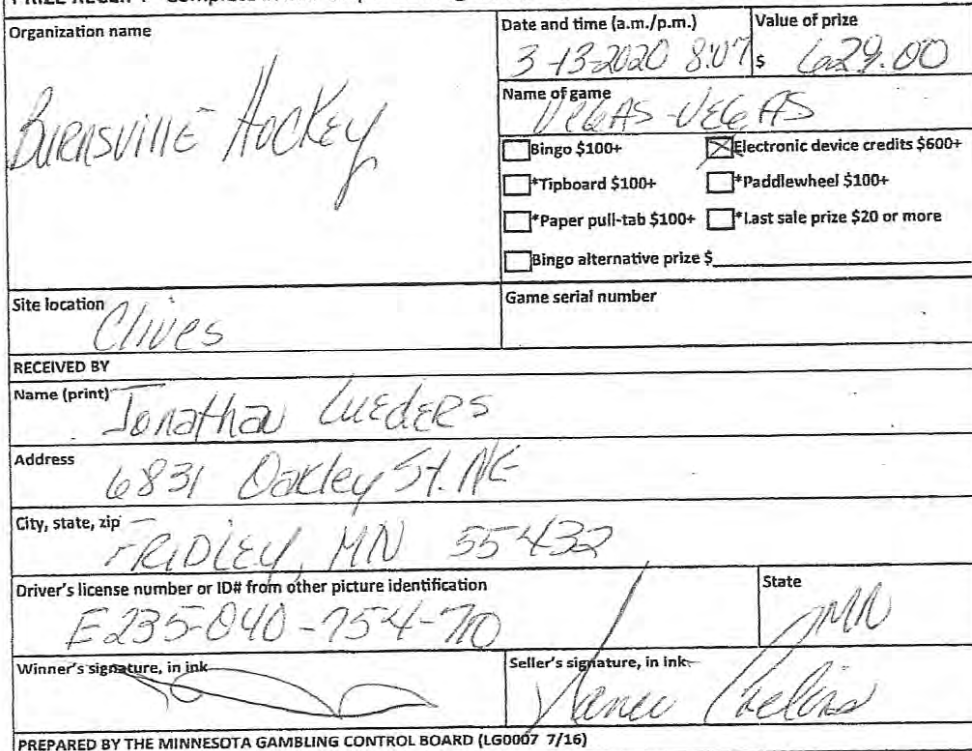 Organization name
Burnsville Hockey
Date and time (a.m./p.m.)
3-13-2020 8:07
Value of prize
$ 629.00
Name of game
Vegas-Vegas
Bingo $100+
Electronic device credits $600+
*Tipboard $100+
*Paddlewheel $100+
*Paper pull-tab $100+
*Last sale prize $20 or more
Bingo alternative prize $
Site location
Clives
Game serial number
RECEIVED BY
Name (print)
Jonathan Lueders
Address
6831 Oakley St. NE
City, state, zip
Fridley, MN 55432
Driver's license number or ID# from other picture identification
E235-040-754-710
State
MN
Winner's signature, in ink
Seller's signature, in ink
PREPARED BY THE MINNESOTA GAMBLING CONTROL BOARD (LG0007 7/16)